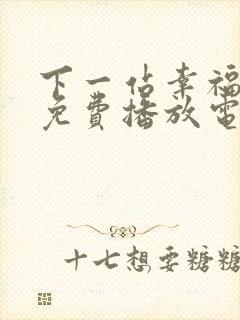 下一站幸福
免费播放电
十七想要糖糖